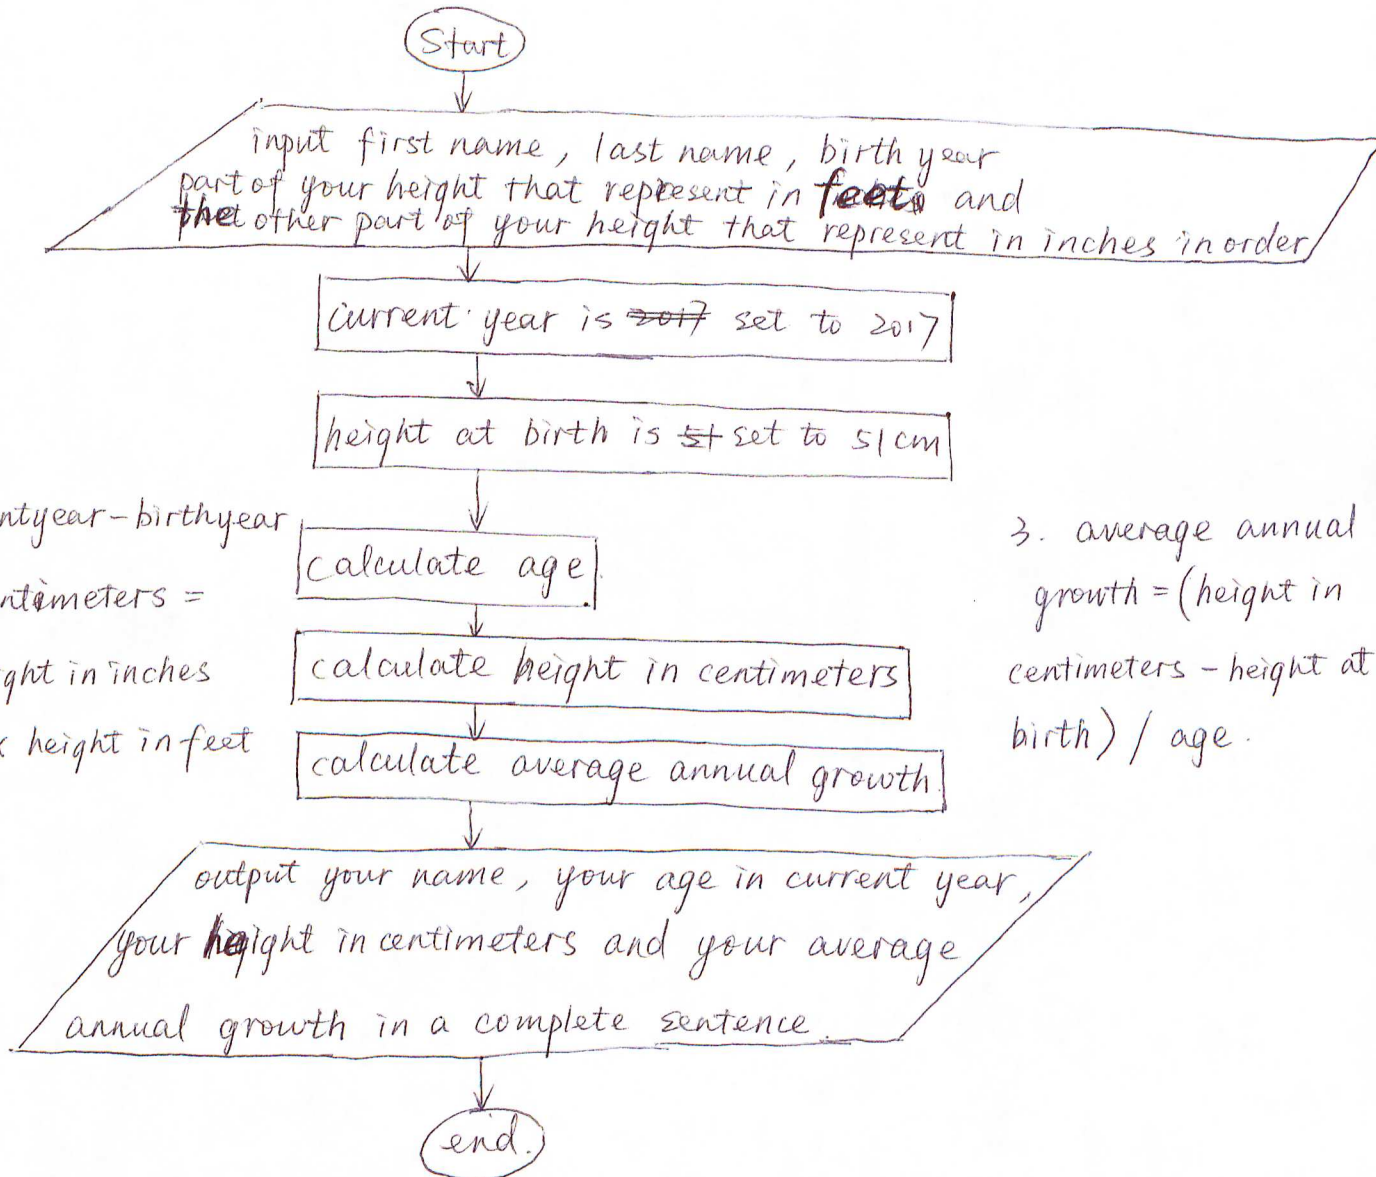 Start
input first name, last name, birth year
part of your height that represent in feet and
the other part of your height that represent in inches in order
current year is 2017 set to 2017
height at birth is 51 set to 51 cm
ntyear - birthyear
calculate age.
ntimeters =
ght in inches
calculate height in centimeters
x height in feet
calculate average annual growth
3. average annual
growth = (height in
centimeters - height at
birth) / age.
output your name, your age in current year,
your height in centimeters and your average
annual growth in a complete sentence.
end.